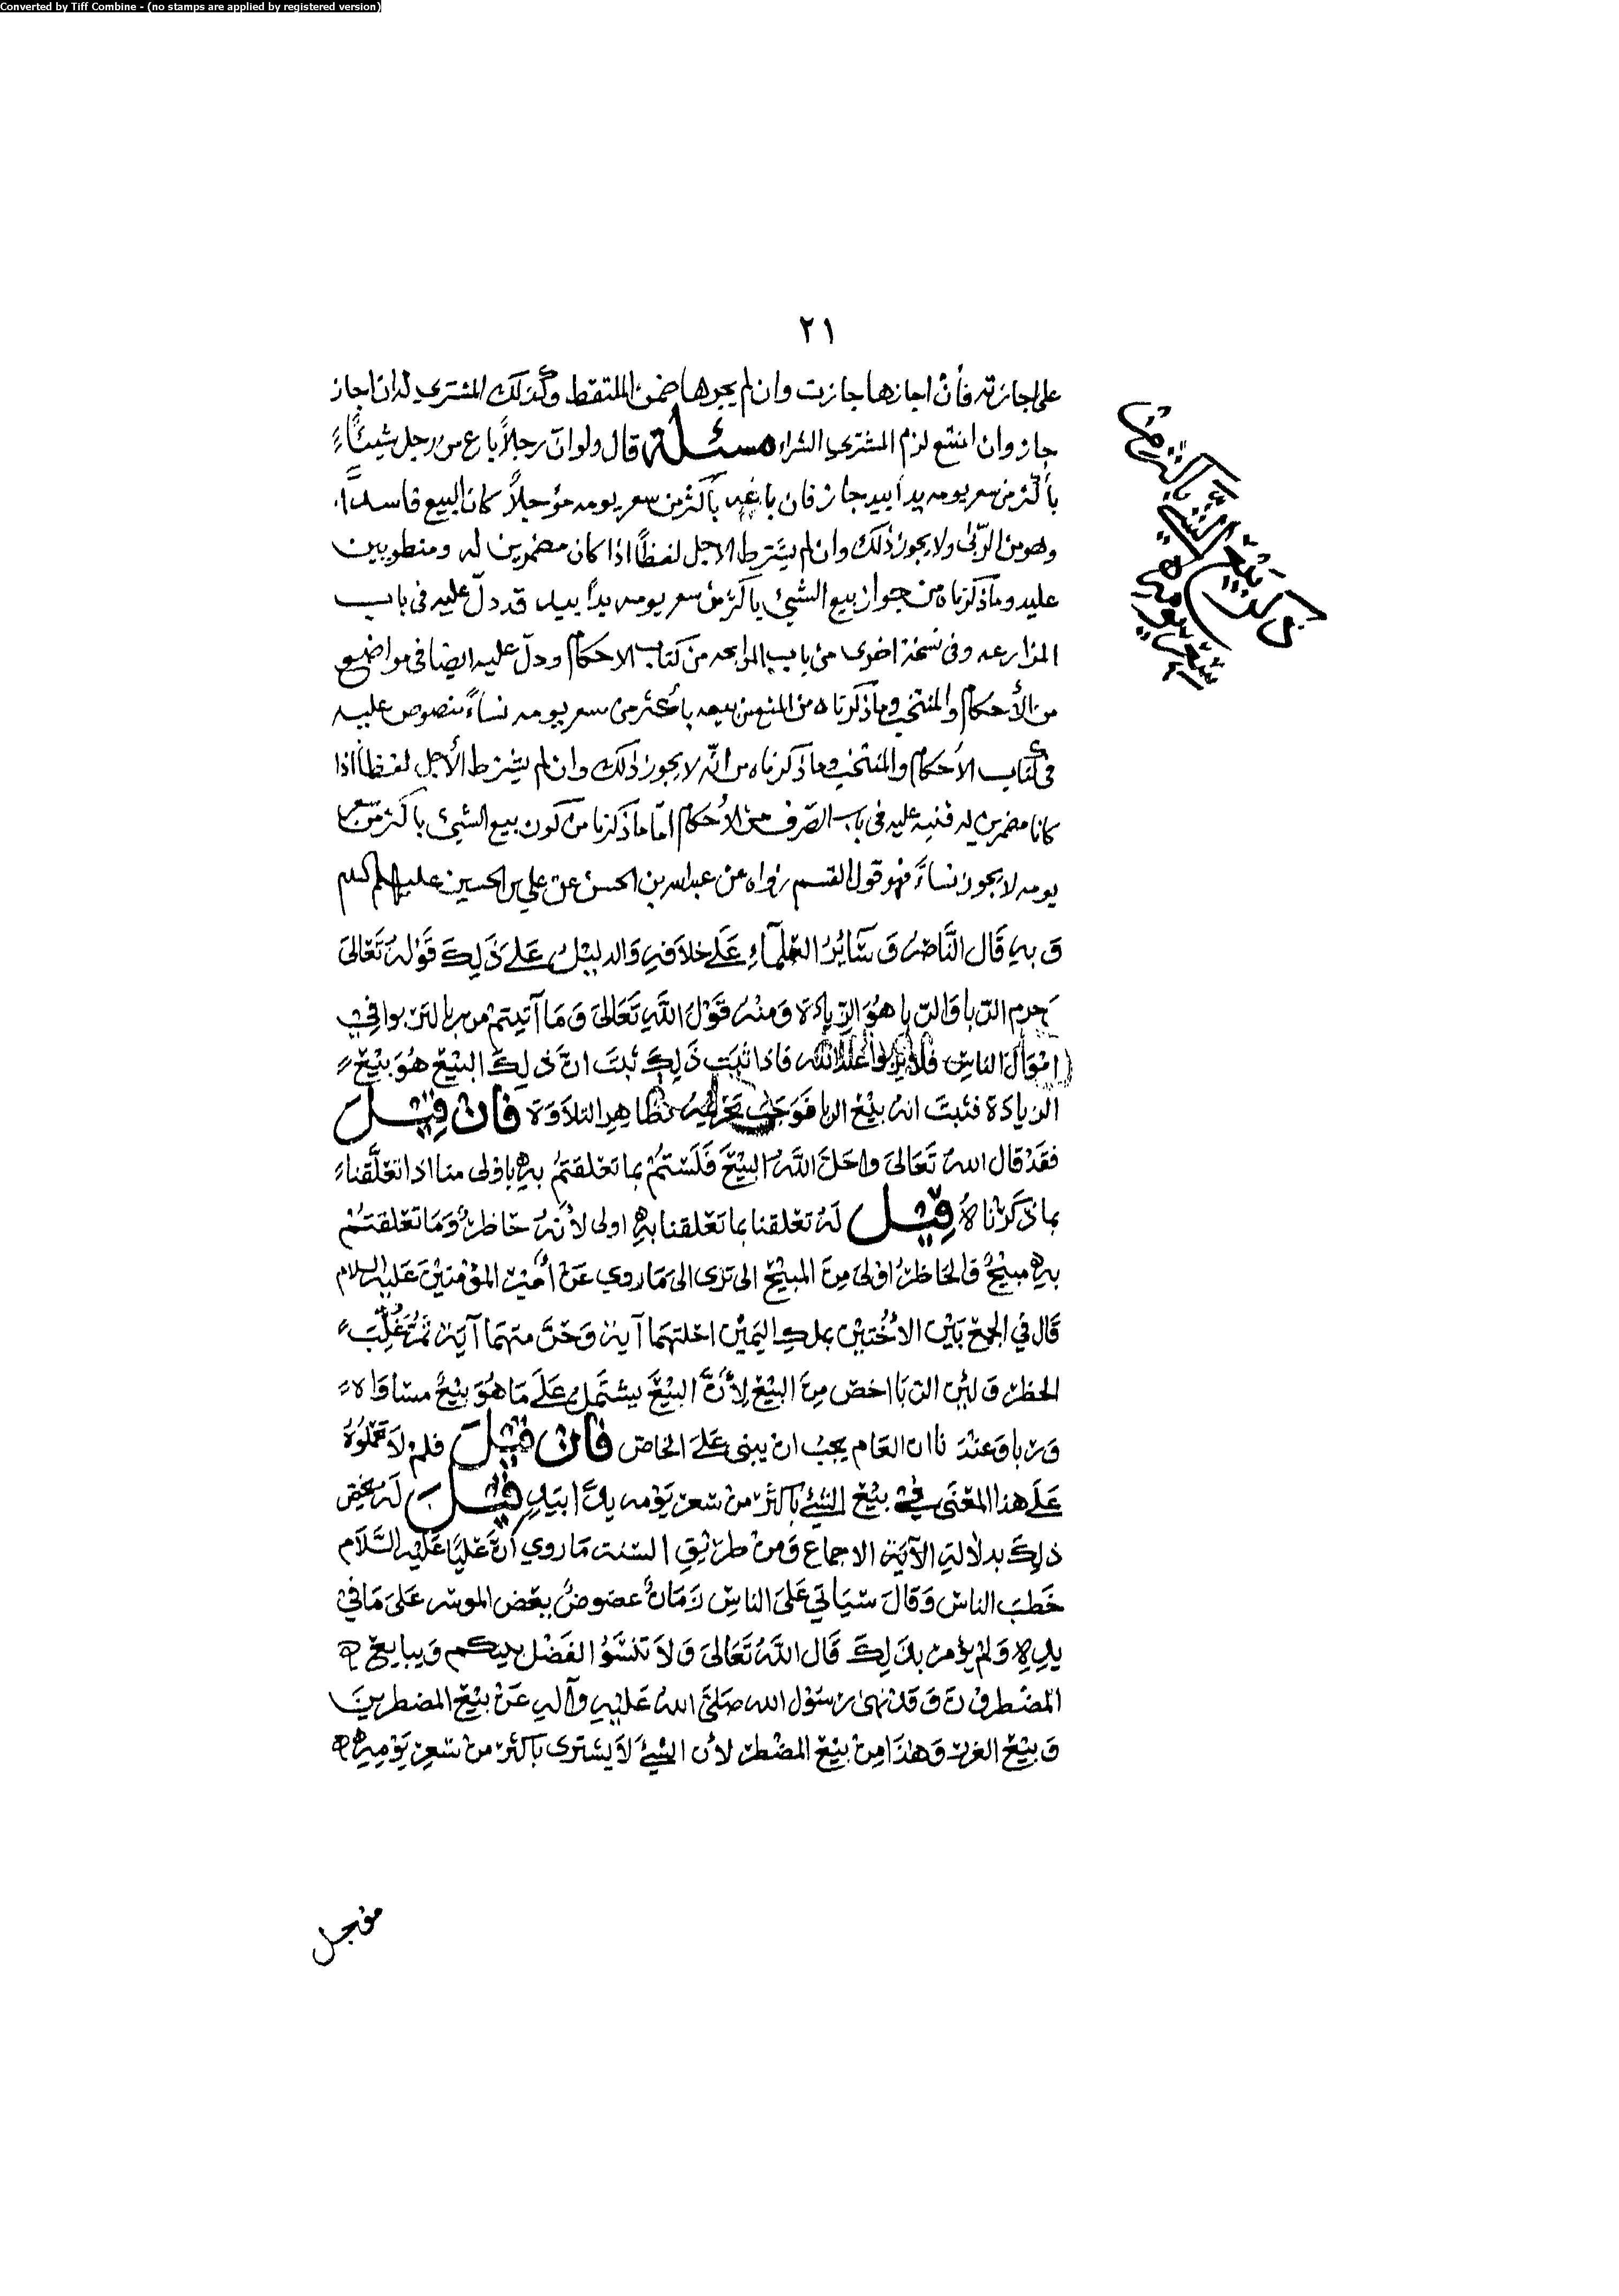 Converted by Tiff Combine - (no stamps are applied by registered version)
٢١
على اجازته فأن اجازها جازت وان لم يجزها ضمن الملتقط وكذلك المشتري له ان اجاز
جاز وان امتنع لزم المشتري الشراء مسئلة قال ولو ان رجلاً باع من رجل شيئاً
بأكثر من سعر يومه يداً بيد جاز فان باعه بأكثر من سعر يومه مؤجلاً كان البيع فاسدا
وهو من الربى ولا يجوز ذلك وان لم يشترط الاجل لفظاً اذا كان مضمرين له ومنطويين
عليه وما ذكرناه من جواز بيع الشيئ باكثر من سعر يومه يداً بيد قد دلّ عليه فى باب
المزارعه وفى نسخة اخرى من باب المرابحه من كتاب الاحكام ودلّ عليه ايضا فى مواضع
من الأحكام والمنتخب وما ذكرناه من المنع من بيعه بأكثر من سعر يومه نساءً منصوص عليه
فى كتاب الأحكام والمنتخب وما ذكرناه من انّه لا يجوز ذلك وان لم يشترط الأجل لفظاً اذا
كانا مضمرين له فنبه عليه فى باب الصّرف من الأحكام امّا ما ذكرنا من كون بيع الشيئ باكثر من سعر
يومه لا يجوز نساءً فهو قول القسم رواه عن عبدالله بن الحسن عن علي بن الحسين عليهم السلم
وَبه قَال النَّاصرُ وَسَائرُ العلمآءِ عَلَى خلافهِ وَالدليْلُ عَلى ذَلِكَ قَوْلهُ تَعَالىَ
حرم الربا وَالربا هُوَ الزّيادَة وَمنْهُ قَوْل اللَّهِ تَعَالىَ وَمَا آتيتم من ربا لتربوا في
امْوَال الناسِ فلا يربوا عند الله فاذا ثبَت ذَلِكَ ثبتَ انّ ذلِكَ البَيْع هُوَ بَيْع
الزيادة فثبتَ انهُ بيْع الربا فَوَجَبَ تحريمه بظاهر التلاوَة فان قيل
فقَدْ قال اللهُ تَعَالىَ واحَلَ اللَّهُ البيْعَ فَلَسْتمُ بما تعَلقتمُ بهِ باوْلى منا اذا تعَلَّقنا
بما ذكرْناهُ قيل لهُ تعَلقنا بما تعَلقنا بهِ اولى لأنهُ حَاظرٌ وَمَا تعَلقتمُ
بهِ مبيْحٌ وَالحَاظرُ اوْلىَ مِنَ المبيْح الى ترَى الى مَا روي عَنْ أميْر المؤمنيْنَ عَليْه السلام
قَال في الجمْع بَيْن الأُخْتيْن بملكِ اليمَيْن احَلتهمَا آيةٌ وَحَرَّمَتهمَا آيَةٌ ثمُ غُلّبَ
الحظرُ وَلئن الربَا اخَصّ مِنَ البَيْع لِأنَّ البَيْعَ يشتَملُ عَلَى مَا هُوَ بيْعُ مسَاوَاة
وَربا وَعنْدَنا ان العَام يجبُ ان يبنى عَلَى الخَاصّ فان قيْلَ فلمْ لاَ حَمَلوُهُ
عَلَى هذا المَعْنى في بيْع الشيئ بأكثرَ من سَعر يَوْمه يداً بيَدٍ قيْلَ لَهُ نخص
ذلِكَ بدلالةِ الآيَة الاجماع وَمِنْ طرِيْقِ السنة مَا روي أنَّ عَليَّا عَليْه السَّلاَم
خَطبَ الناس وَقَالَ سيَاتي عَلىَ الناسِ زَمَانٌ عضوضٌ يعَض الموسر عَلىَ مَا في
يدِهِ وَلمْ يؤمر بذَلِكَ قَال اللَّهُ تَعَالىَ وَلاَ تنسَوُا الفَضْل بينكم وَيبايع
المضطرُّوْنَ وَقَدْ نهَى رَسُوْل الله صَلىَ اللهُ عَليْهِ وآلهِ عَنْ بيْع المضطرينَ
وَبيْع الغررِ وَهذا مِنْ بيْع المضْطر لأن الشيْئَ لاَ يشترى بأكثر منْ سَعرِ يَوْمهِ
ذكر بَيْع الشيْئ باكثر من
سعر يومه
مؤجل